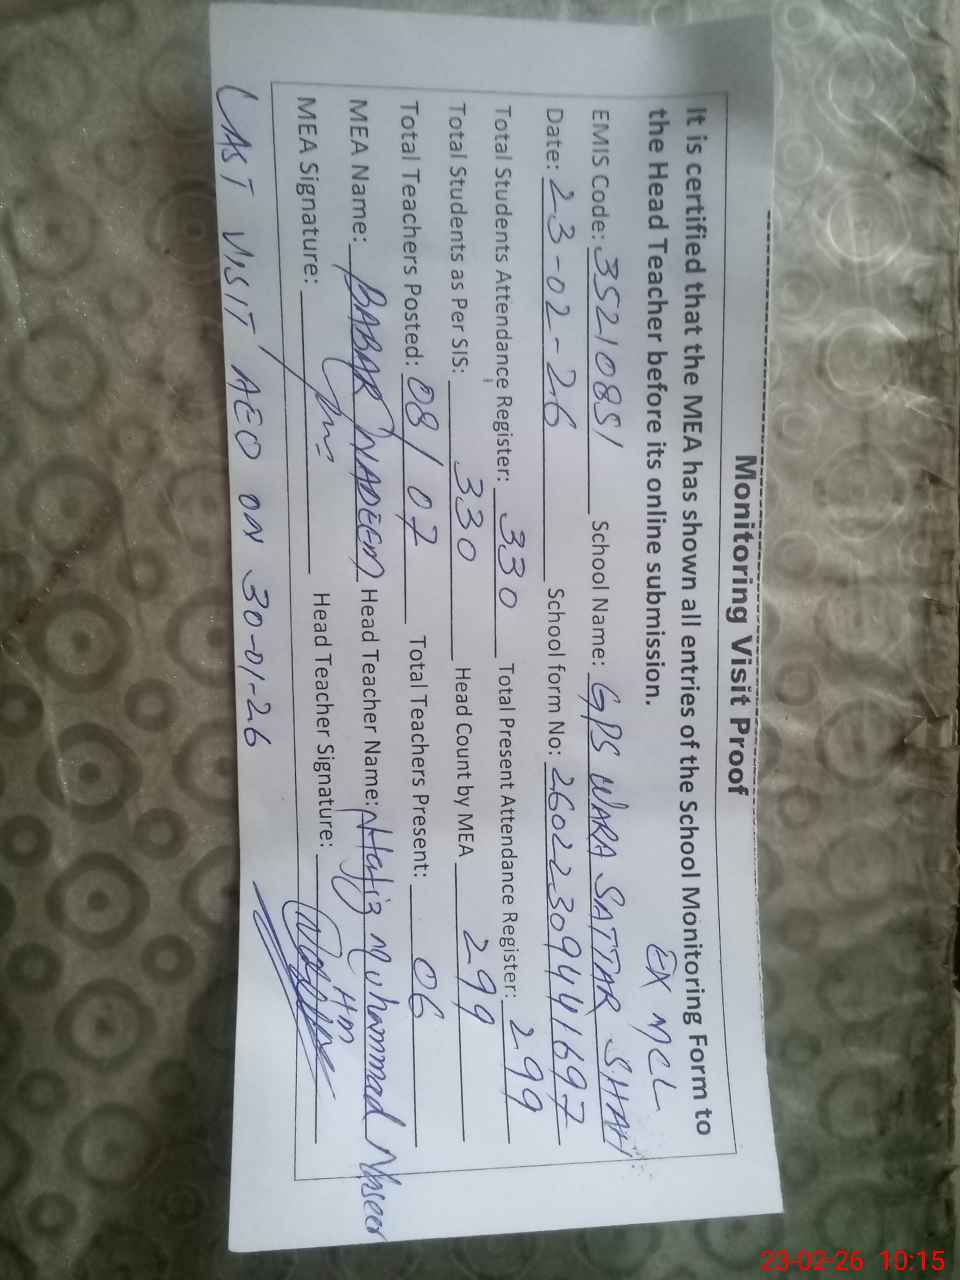 Monitoring Visit Proof
It is certified that the MEA has shown all entries of the School Monitoring Form to
the Head Teacher before its online submission.
EX MCL
EMIS Code: 35210851 School Name: GPS WARA SATTAR SHAH
Date: 23-02-26 School form No: 260223094441697
Total Students Attendance Register: 330 Total Present Attendance Register: 299
Total Students as Per SIS: 330 Head Count by MEA 299
Total Teachers Posted: 08/07 Total Teachers Present: 06
MEA Name: BABAR NADEEM Head Teacher Name: Hafiz Muhammad Naseer
HM
MEA Signature: Head Teacher Signature:
LAST VISIT AEO ON 30-01-26
23-02-26 10:15